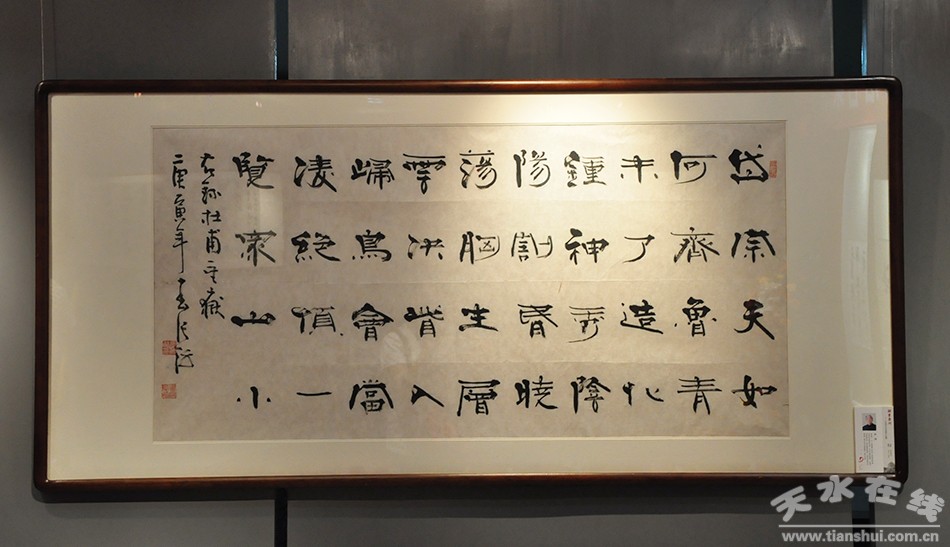 岱宗夫如
何齊魯青
未了造化
鍾神秀陰
陽割昏曉
蕩胸生層
雲決眥入
歸鳥會當
凌絕頂一
覽眾山小
右錄杜甫望嶽
庚寅年
天水在线
www.tianshui.com.cn